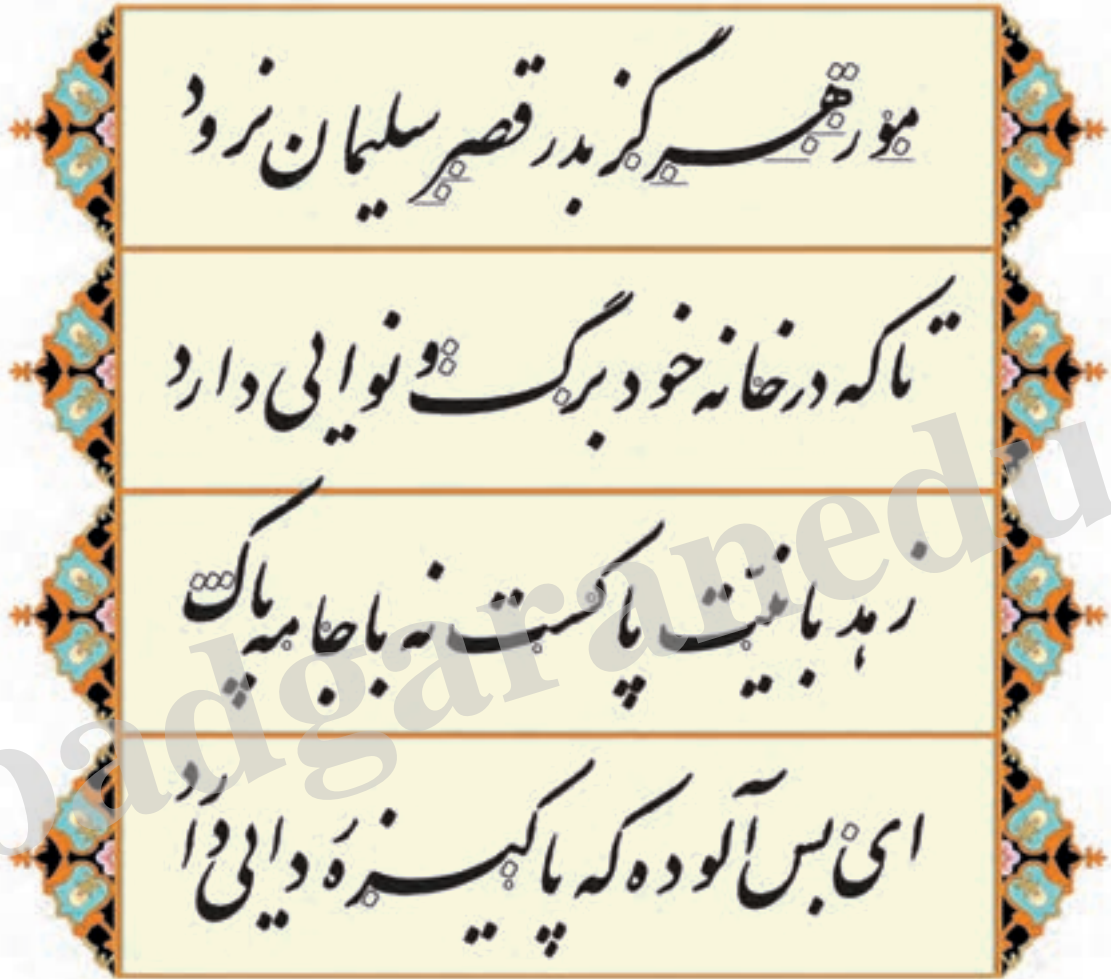 مور هرگز بدر قصر سلیمان نرود
تا که در خانه خود برگ و نوایی دارد
زهد با نیت پاکست نه با جامه پاک
ای بس آلوده که پاکیزه ردایی دارد
padgaranedu